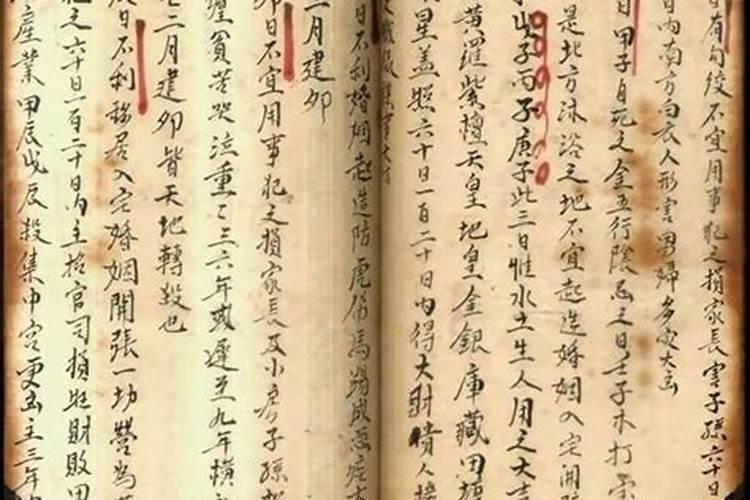 日有勾绞不宜用事犯之损家長害子孫六十日
日內南方白衣人形害男婦多災大凶
日甲子自死之金五行陰忌之日壬子木打
是北方沐浴之地不宜起造婚姻入宅開
子丙子庚子此三日惟水土生人用之大吉
黄羅紫檀天皇地皇金銀庫藏田塘
星盖照六十日一百二十日內得大財貴人接
日不利婚姻起造防虎傷馬踢成
二月建卯
卯日不宜用事犯之損家長及小房子孫
貧苦哭泣重重三六年或遲至九年橫
二月建卯皆天地轉殺也
日不利移居入宅婚姻開張一切營為
犯之六十日一百二十日內主招官司損畜財敗田
產業甲辰戊辰殺集中宮更凶主三年